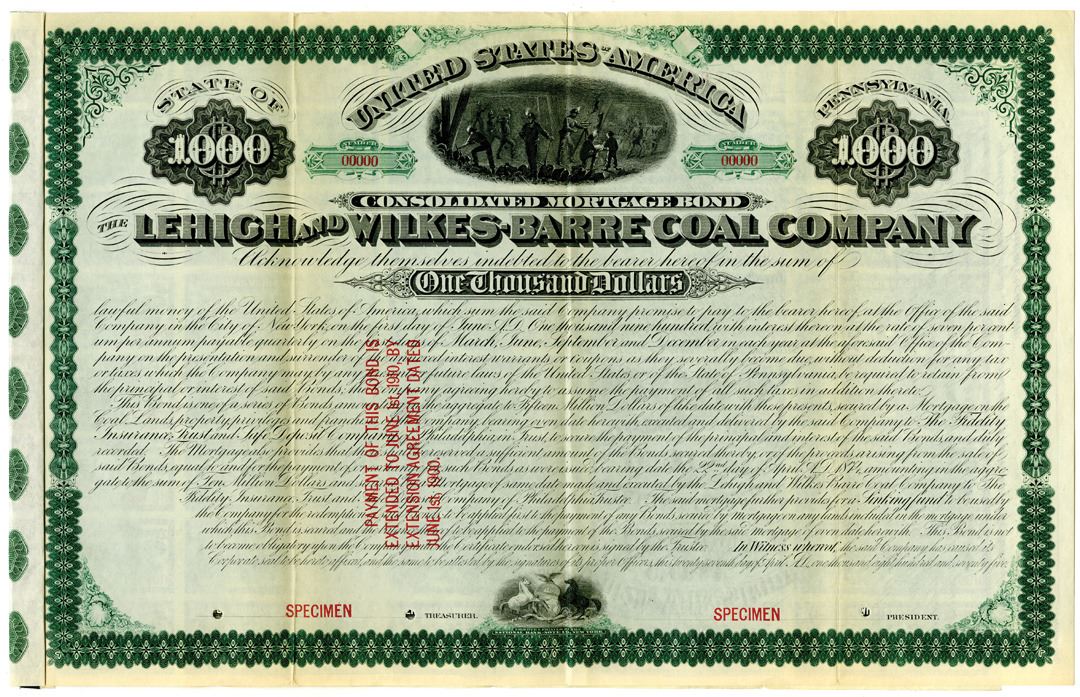 UNITED STATES OF AMERICA
STATE OF
PENNSYLVANIA
1000
NUMBER
00000
NUMBER
00000
1000
CONSOLIDATED MORTGAGE BOND
THE LEHIGH AND WILKES-BARRE COAL COMPANY
Acknowledge themselves indebted to the bearer hereof in the sum of
One Thousand Dollars
lawful money of the United States of America, which sum the said Company promise to pay to the bearer hereof, at the Office of the said
Company in the City of New York, on the first day of June A.D. One thousand nine hundred, with interest thereon at the rate of seven per cent
per annum payable quarterly on the of March, June, September and December in each year at the aforesaid Office of the Com-
pany on the presentation and surrender of the annexed interest warrants or coupons as they severally become due, without deduction for any tax
or taxes which the Company may by any future laws of the United States or of the State of Pennsylvania be required to retain from
the principal or interest of said Bonds, the Company agreeing hereby to assume the payment of all such taxes
This Bond is one of a series of Bonds amounting in the aggregate to Fifteen Million Dollars of like date with these presents, secured by a Mortgage on the
Coal Lands, property, privileges and franchises of said Company bearing even date herewith, executed and delivered by the said Company to The Fidelity
Insurance, Trust and Safe Deposit Company of Philadelphia, in Trust, to secure the payment of the principal and interest of the said Bonds, and duly
recorded. The Mortgage a sufficient amount of the Bonds arising from the sale of
said Bonds, equal to and for the payment of such Bonds as were issued bearing date the 22nd day of April A.D. 1874, amounting in the aggre-
gate to the sum of Ten Million Dollars and Mortgage of same date executed by the Lehigh and Wilkes-Barre Coal Company to The
Fidelity Insurance, Trust and Company of Philadelphia Trustee. The said mortgage further provides for a Sinking fund to be used by
the Company for the redemption and Bonds secured by mortgage included in the mortgage under
which this Bond is secured the Bonds secured by the said Mortgage of even date herewith. This Bond is not
to become obligatory upon the Company until the Certificate endorsed hereon is signed by the Trustee. In Witness whereof, the said Company has caused its
Corporate seal to be hereto affixed, and the same to be attested by the signatures of its proper Officers, this twenty seventh day of April A.D. one thousand eight hundred and seventy five.
PAYMENT OF THIS BOND IS
EXTENDED TO JUNE 1st, 1910 BY
EXTENSION AGREEMENT DATED
JUNE 1st, 1900.
SPECIMEN
TREASURER.
SPECIMEN
PRESIDENT.
NATIONAL BANK NOTE CO. NEW YORK